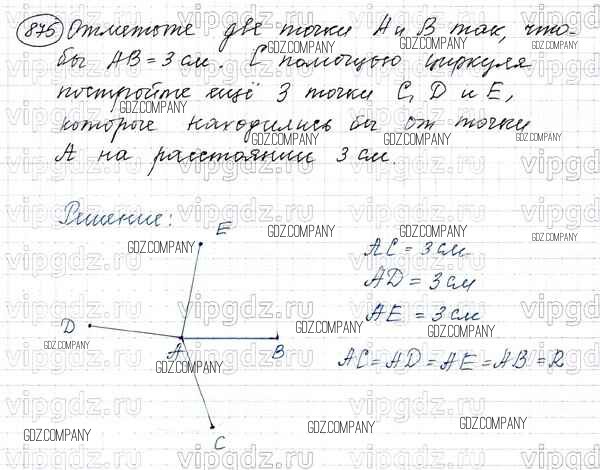 875 Отметьте две точки А и В так, что-
бы АВ = 3 см. С помощью циркуля
постройте ещё 3 точки С, D и Е,
которые находились бы от точки
А на расстоянии 3 см.
Решение:
E
D
A
B
C
AC = 3 см
AD = 3 см
AE = 3 см
AC = AD = AE = AB = R
GDZ.COMPANY
vipgdz.ru